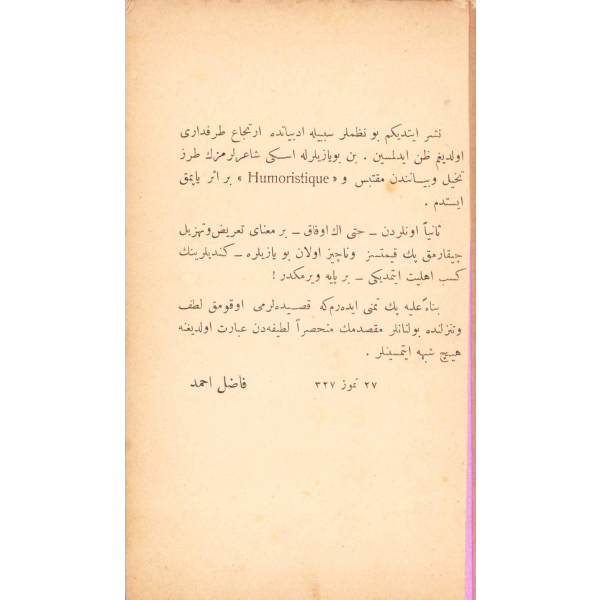 نشر ايتديكم بو نظملر سببيله ادبياتده ارتجاع طرفدارى
اولديغم ظن ايدلمسين . بن بويازيلرله اسكى شاعرلرمزك طرز
تخيل وبيانندن مقتبس و «Humoristique» بر اثر ياپمق
ايستدم .
ثانياً اونلردن ــ حتى اك اوفاق ــ بر معناى تعريض وتهزيل
چيقارمق پك قيمتسز وناچيز اولان بو يازيلره ــ كنديلرينك
كسب اهليت ايتمديكى ــ بر پايه ويرمكدر !
بناءً عليه پك تمنى ايده‌رم كه قصيده‌لرمى اوقومق لطف
وتنزلنده بولنانلر مقصدمك منحصراً لطيفه‌دن عبارت اولديغنه
هيچ شبهه ايتمسينلر .
٢٧ تموز ٣٢٧ فاضل احمد